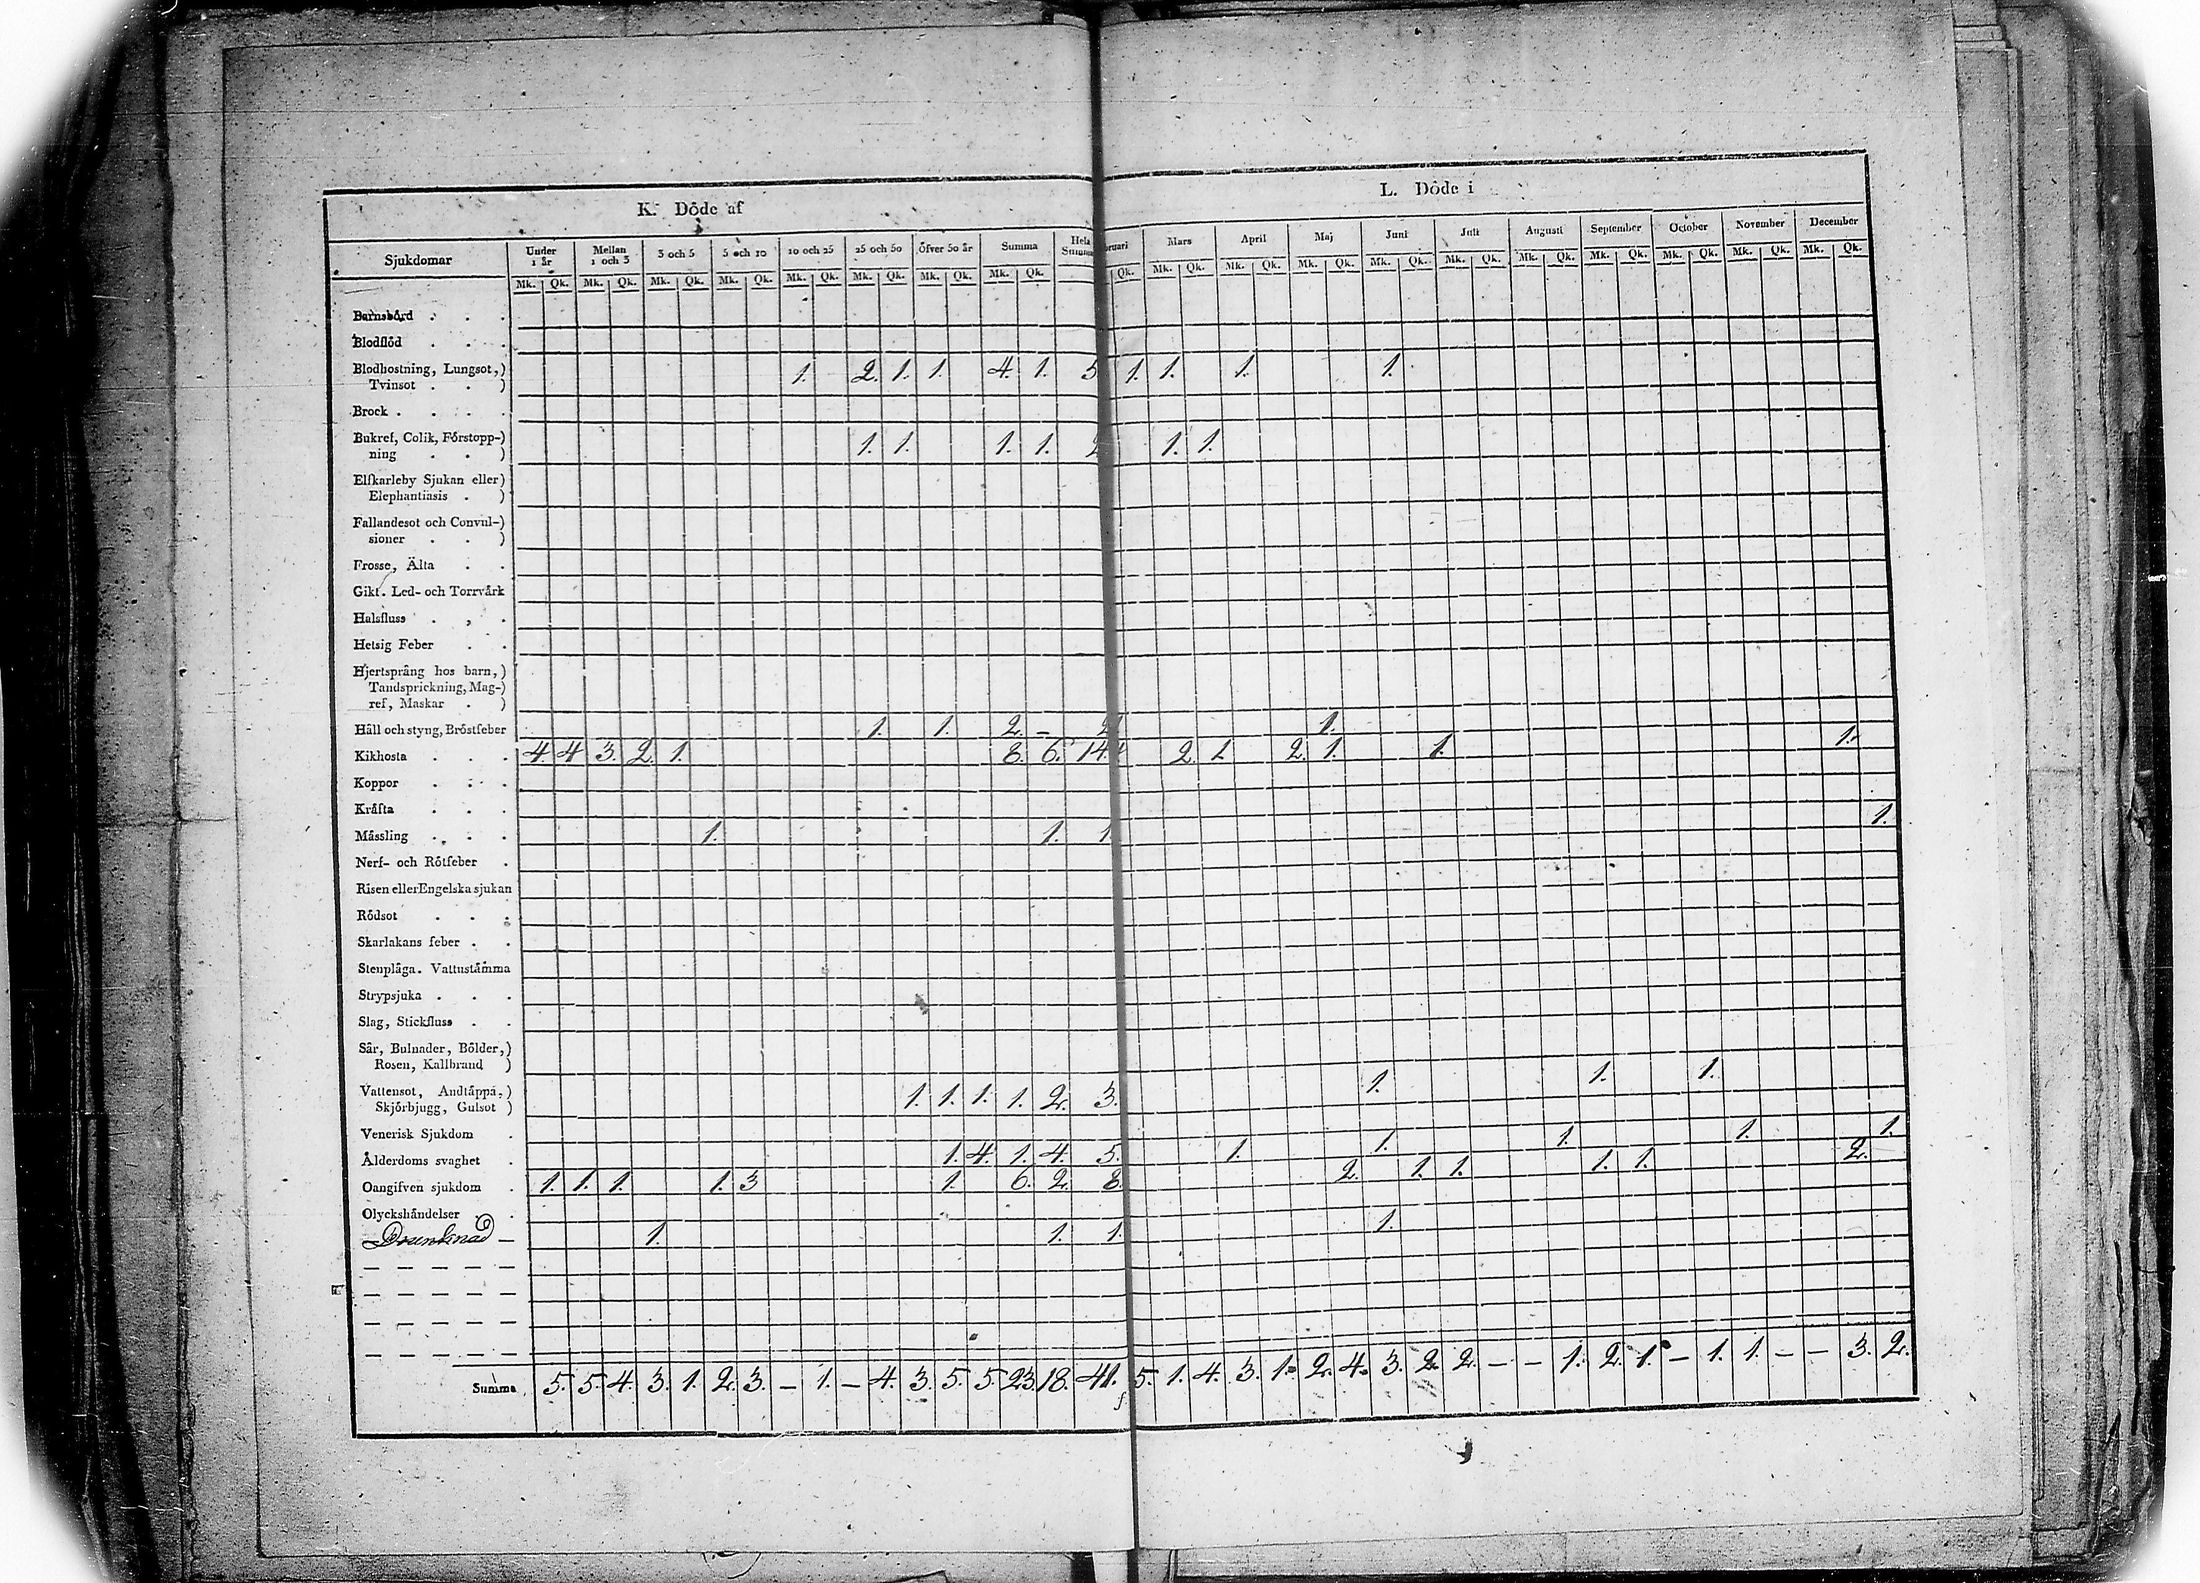 K. Döde af
L. Döde i
Sjukdomar
Under 1 år
Mellan 1 och 3
3 och 5
5 och 10
10 och 25
25 och 50
öfver 50 år
Summa
Hela
Mars
April
Maj
Juni
Juli
Augusti
September
October
November
December
Mk. Qk. Mk. Qk. Mk. Qk. Mk. Qk. Mk. Qk. Mk. Qk. Mk. Qk. Mk. Qk.
Qk. Mk. Qk. Mk. Qk. Mk. Qk. Mk. Qk. Mk. Qk. Mk. Qk. Mk. Qk. Mk. Qk. Mk. Qk. Mk. Qk.
Barnsbörd . . .
Blodflöd . . .
Blodhostning, Lungsot,)
Tvinsot . . ) 1. 2. 1. 1. 4. 1. 5 1. 1. 1. 1.
Brock . . . .
Bukref, Colik, Förstopp-)
ning . . ) 1. 1. 1. 1. 2 1. 1.
Elfkarleby Sjukan eller)
Elephantiasis . )
Fallandesot och Convul-)
sioner . . )
Frosse, Älta . .
Gikt. Led- och Torrvärk
Halsfluss . . .
Hetsig Feber . .
Hjertsprång hos barn,)
Tandsprickning, Mag-)
ref, Maskar . )
Håll och styng, Bröstfeber 1. 1. 2. – 2 1. 1.
Kikhosta . . . 4. 4 3. 2. 1. 8. 6. 14. 2. 1. 2. 1. 1.
Koppor . . .
Kräfta . . .
Mässling . . . 1. 1. 1. 1.
Nerf- och Rötfeber .
Risen eller Engelska sjukan
Rödsot . . .
Skarlakans feber . .
Stenplåga. Vattustämma
Strypsjuka . . .
Slag, Stickfluss . .
Sår, Bulnader, Bölder,)
Rosen, Kallbrand )
Vattensot, Andtäppa,)
Skjörbjugg, Gulsot ) 1. 1. 1. 1. 2. 3. 1. 1. 1.
Venerisk Sjukdom .
Ålderdoms svaghet . 1. 4. 1. 4. 5. 1. 1. 1. 1. 1.
Oangifven sjukdom . 1. 1. 1. 1. 3 1. 6. 2. 8. 2. 1. 1. 1. 1. 2.
Olyckshändelser . .
Drunknad – 1. 1. 1. 1.
Summa 5. 5. 4. 3. 1. 2. 3. – 1. – 4. 3. 5. 5. 23. 18. 41. 5. 1. 4. 3. 1. 2. 4. 3. 2. 2. – – 1. 2. 1. – 1. 1. – – 3. 2.